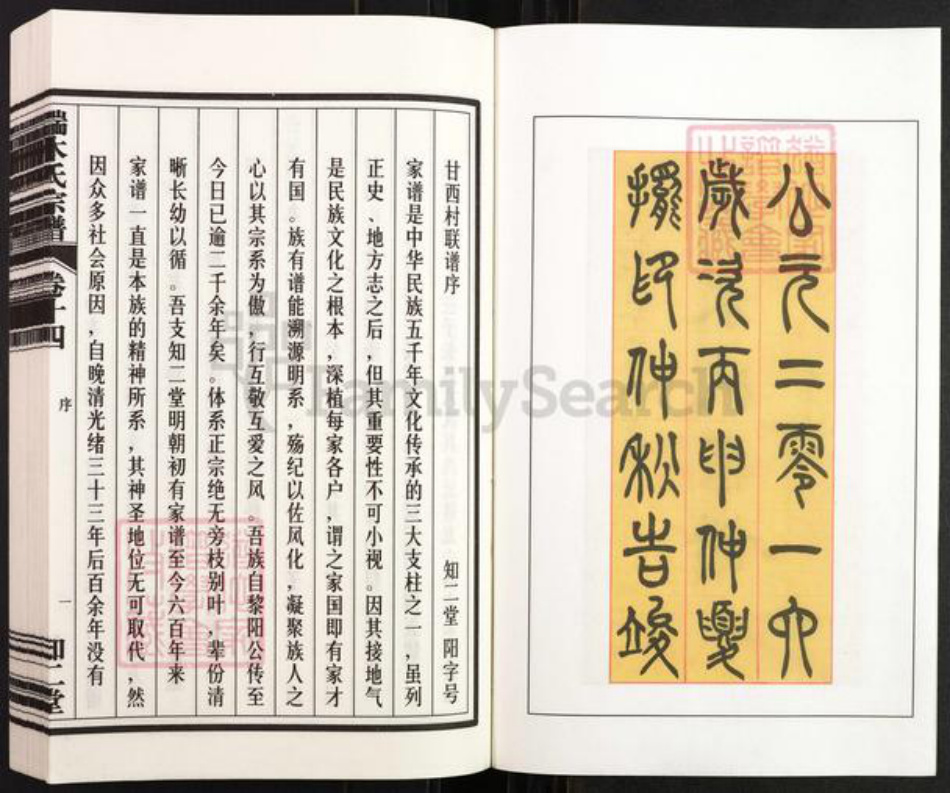 公元二零一六
歲次丙申仲夏
擺印仲秋告竣
甘西村联谱序 知二堂 阳字号
家谱是中华民族五千年文化传承的三大支柱之一,虽列
正史、地方志之后,但其重要性不可小视。因其接地气
是民族文化之根本,深植每家各户,谓之家国即有家才
有国。族有谱能溯源明系,殇纪以佐风化,凝聚族人之
心以其宗系为傲,行互敬互爱之风。吾族自黎阳公传至
今日已逾二千余年矣。体系正宗绝无旁枝别叶,辈份清
晰长幼以循。吾支知二堂明朝初有家谱至今六百年来
家谱一直是本族的精神所系,其神圣地位无可取代,然
因众多社会原因,自晚清光绪三十三年后百余年没有
端木氏宗谱 卷十四 序 一 知二堂
FamilySearch